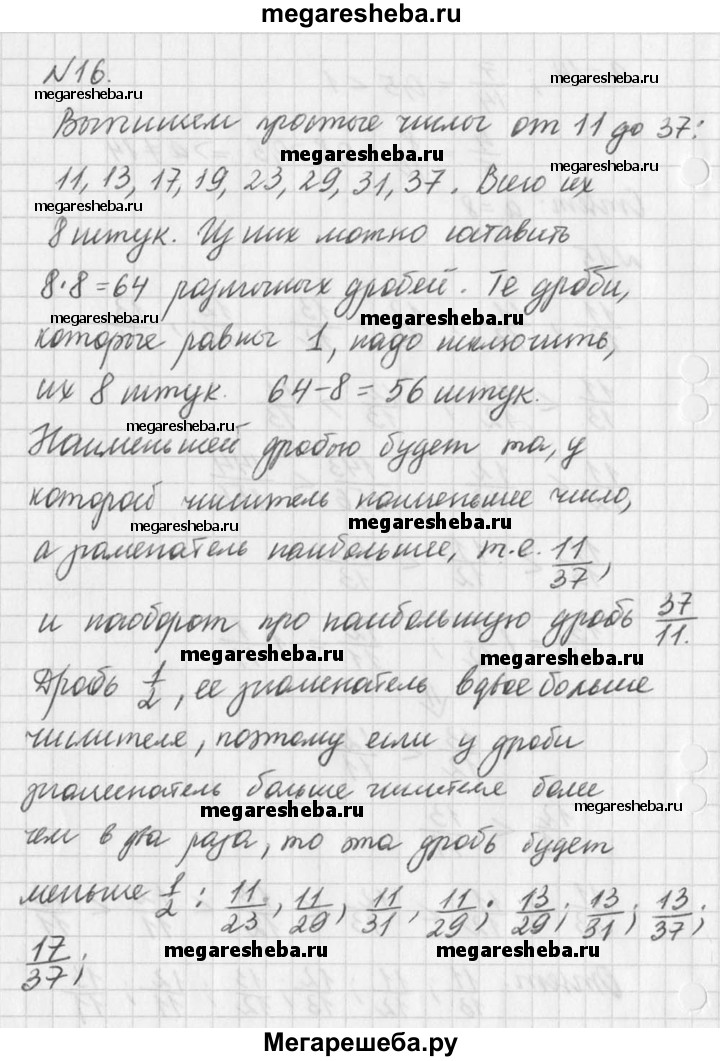 megaresheba.ru
№16.
megaresheba.ru
megaresheba.ru
Выпишем простые числа от 11 до 37:
megaresheba.ru
11, 13, 17, 19, 23, 29, 31, 37. Всего их
megaresheba.ru
megaresheba.ru
8 штук. Из них можно составить
8·8=64 различных дробей. Те дроби,
megaresheba.ru
которые равны 1, надо исключить,
их 8 штук. 64-8=56 штук.
megaresheba.ru
megaresheba.ru
Наименьшей дробью будет та, у
которой числитель наименьшее число,
megaresheba.ru
megaresheba.ru
а знаменатель наибольшее, т.е. 11/37,
и наоборот про наибольшую дробь 37/11.
megaresheba.ru
megaresheba.ru
Дробь 1/2, ее знаменатель вдвое больше
числителя, поэтому если у дроби
знаменатель больше числителя более
megaresheba.ru
megaresheba.ru
чем в два раза, то эта дробь будет
меньше 1/2: 11/23, 11/29, 11/31, 11/29; 13/29; 13/31; 13/37;
17/37;
megaresheba.ru
megaresheba.ru
Мегарешеба.ру